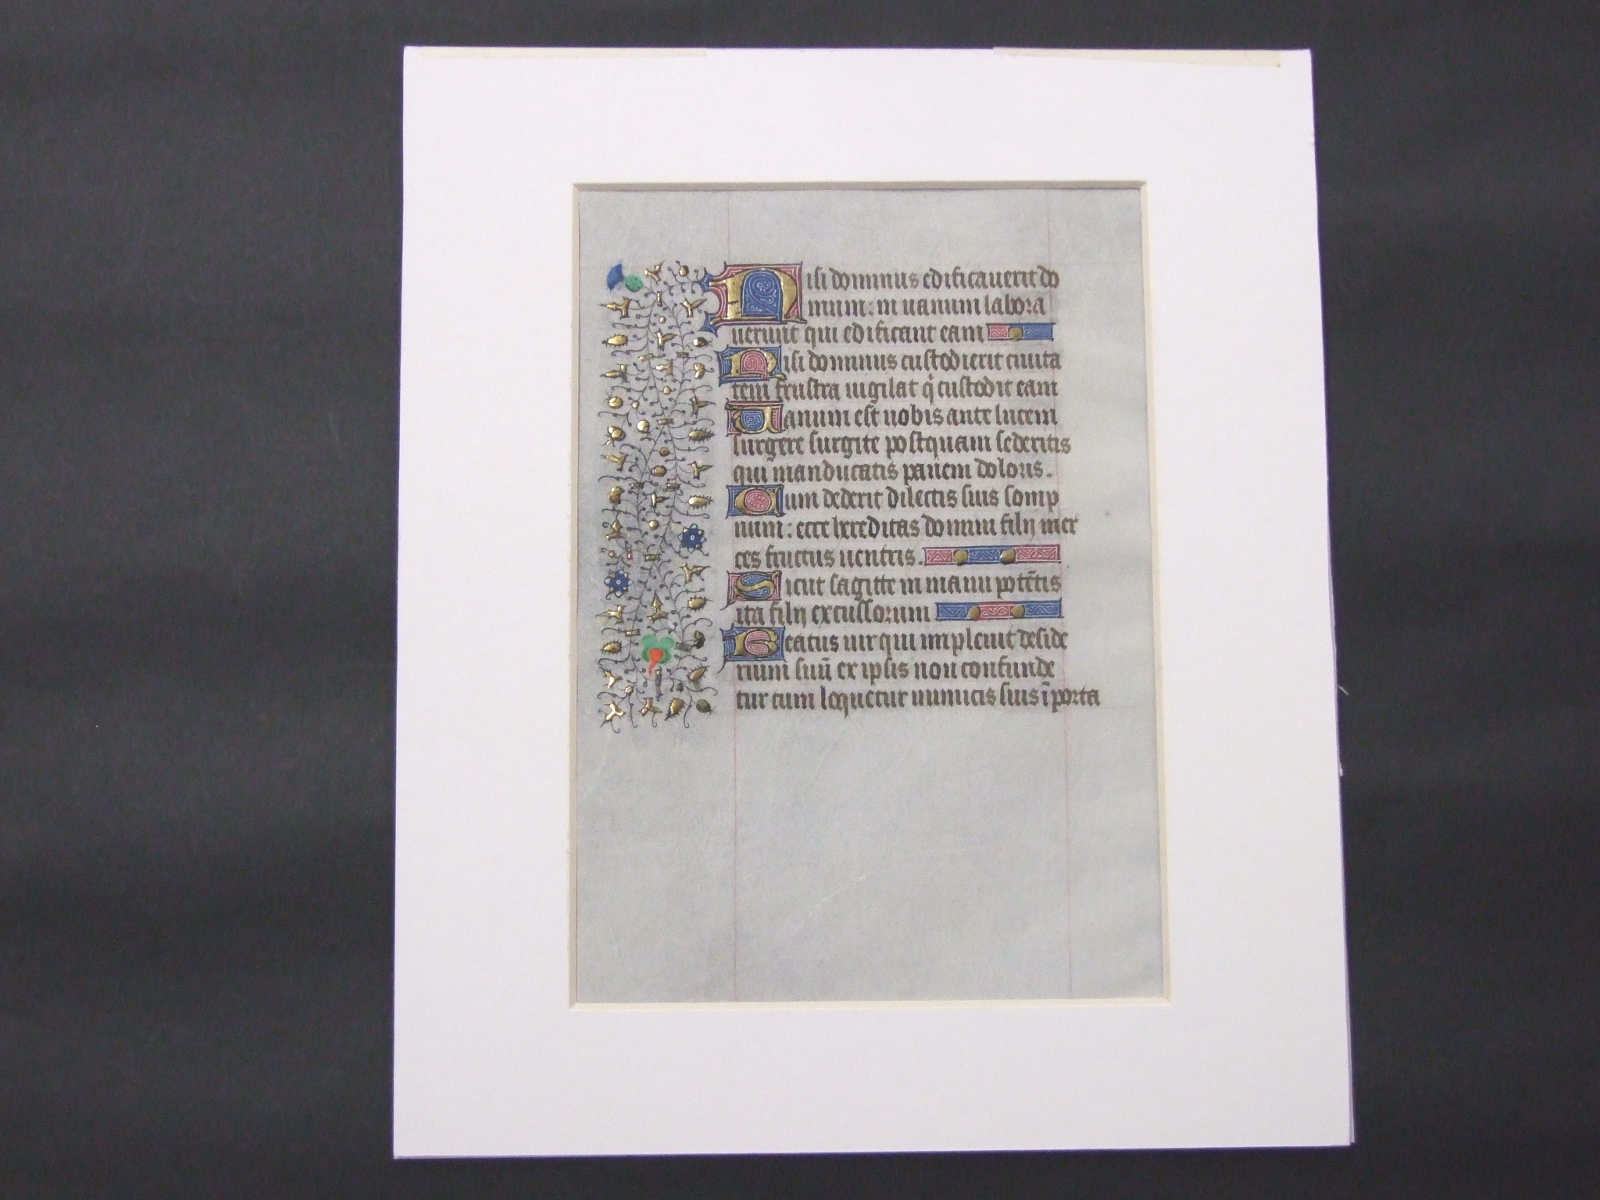 Nisi dominus edificauerit do
mum: in uanum labora
uerunt qui edificant eam
Nisi dominus custodierit ciuita
tem frustra uigilat q̇ custodit eam
Uanum est uobis ante lucem
surgere surgite postquam sederitis
qui manducatis panem doloris.
Cum dederit dilectis suis somp
num: ecce hereditas domini filij mer
ces fructus uentris.
Sicut sagitte in manu potētis
ita filij excussorum
Beatus uir qui impleuit deside
rium suū ex ipsis non confunde
tur cum loquetur inimicis suis ī porta